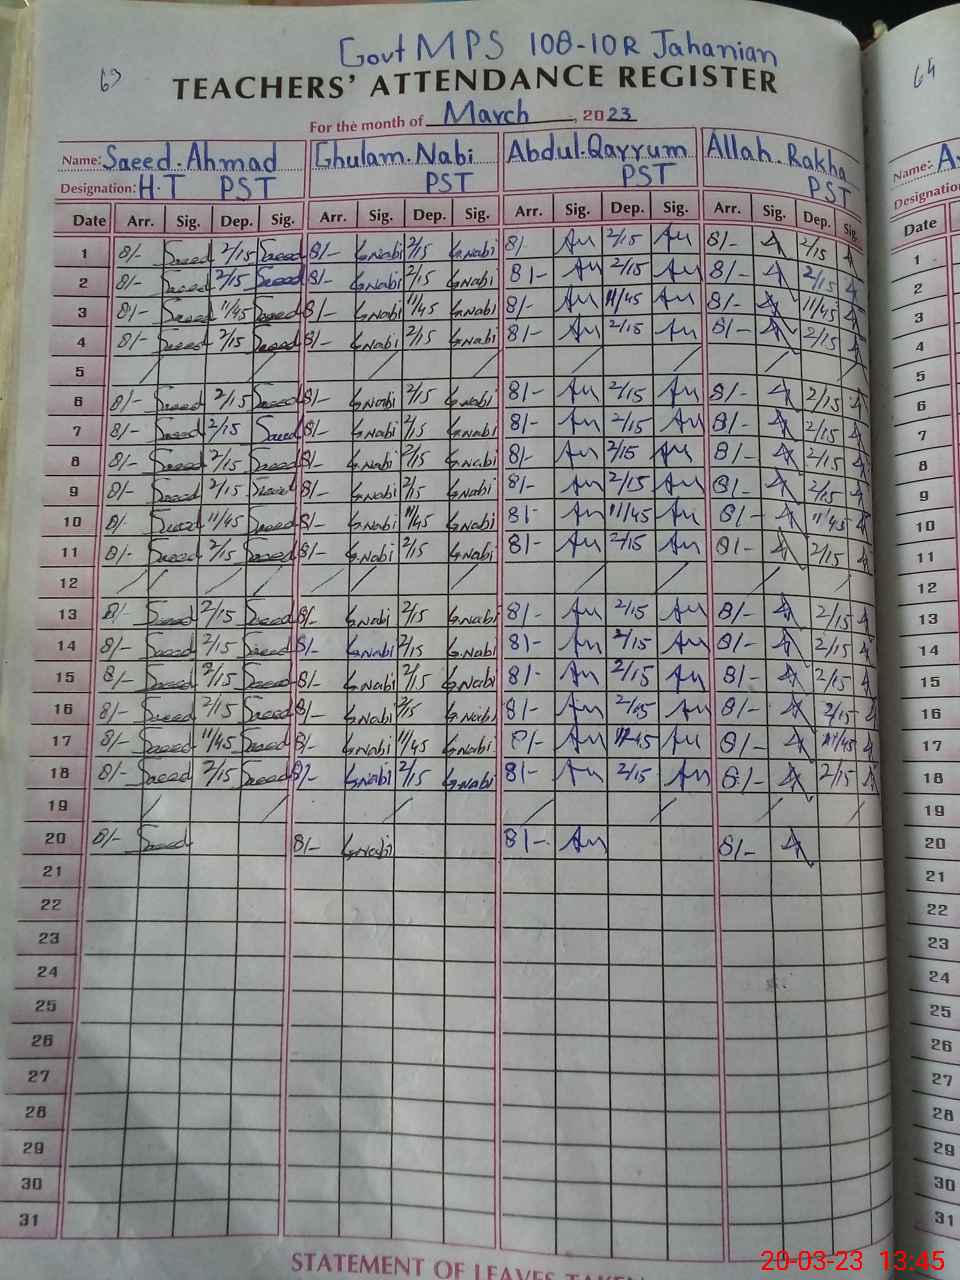 63
Govt MPS 108-10R Jahanian
TEACHERS' ATTENDANCE REGISTER
For the month of March, 2023
Name: Saeed.Ahmad Ghulam.Nabi Abdul.Qayyum Allah.Rakha
Designation: H.T PST PST PST PST
Date Arr. Sig. Dep. Sig. Arr. Sig. Dep. Sig. Arr. Sig. Dep. Sig. Arr. Sig. Dep. Sig.
1 8/- Saeed 2/15 Saeed 8/- G.Nabi 2/15 G.Nabi 8/- 2/15 8/- 2/15
2 8/- Saeed 2/15 Saeed 8/- G.Nabi 2/15 G.Nabi 8/- 2/15 8/- 2/15
3 8/- Saeed 11/45 Saeed 8/- G.Nabi 11/45 G.Nabi 8/- 11/45 8/- 11/45
4 8/- Saeed 2/15 Saeed 8/- G.Nabi 2/15 G.Nabi 8/- 2/15 8/- 2/15
5
6 8/- Saeed 2/15 Saeed 8/- G.Nabi 2/15 G.Nabi 8/- 2/15 8/- 2/15
7 8/- Saeed 2/15 Saeed 8/- G.Nabi 2/15 G.Nabi 8/- 2/15 8/- 2/15
8 8/- Saeed 2/15 Saeed 8/- G.Nabi 2/15 G.Nabi 8/- 2/15 8/- 2/15
9 8/- Saeed 2/15 Saeed 8/- G.Nabi 2/15 G.Nabi 8/- 2/15 8/- 2/15
10 8/- Saeed 11/45 Saeed 8/- G.Nabi 11/45 G.Nabi 8/- 11/45 8/- 11/45
11 8/- Saeed 2/15 Saeed 8/- G.Nabi 2/15 G.Nabi 8/- 2/15 8/- 2/15
12
13 8/- Saeed 2/15 Saeed 8/- G.Nabi 2/15 G.Nabi 8/- 2/15 8/- 2/15
14 8/- Saeed 2/15 Saeed 8/- G.Nabi 2/15 G.Nabi 8/- 2/15 8/- 2/15
15 8/- Saeed 2/15 Saeed 8/- G.Nabi 2/15 G.Nabi 8/- 2/15 8/- 2/15
16 8/- Saeed 2/15 Saeed 8/- G.Nabi 2/15 G.Nabi 8/- 2/15 8/- 2/15
17 8/- Saeed 11/45 Saeed 8/- G.Nabi 11/45 G.Nabi 8/- 11/45 8/- 11/45
18 8/- Saeed 2/15 Saeed 8/- G.Nabi 2/15 G.Nabi 8/- 2/15 8/- 2/15
19
20 8/- Saeed 8/- G.Nabi 8/- 8/-
21
22
23
24
25
26
27
28
29
30
31
STATEMENT OF LEAVES TAKEN
64
Name:
Designation
Date
1
2
3
4
5
6
7
8
9
10
11
12
13
14
15
16
17
18
19
20
21
22
23
24
25
26
27
28
29
30
31
20-03-23 13:45